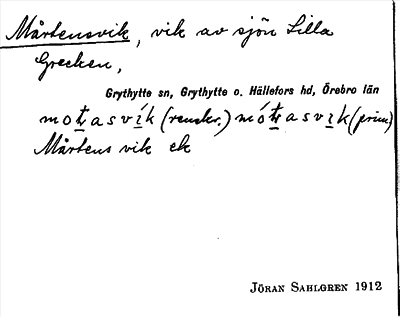 Mårtensvik, vik av sjön Lilla
Grecken,
Grythytte sn, Grythytte o. Hällefors hd, Örebro län
motasvík (renskr.) mótasvik (prim)
Mårtens vik ek
JÖRAN SAHLGREN 1912